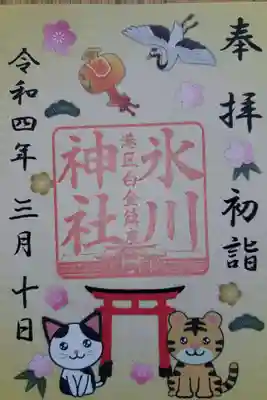 奉拝 初詣
氷川
港区白金鎮座
神社
令和四年三月十日